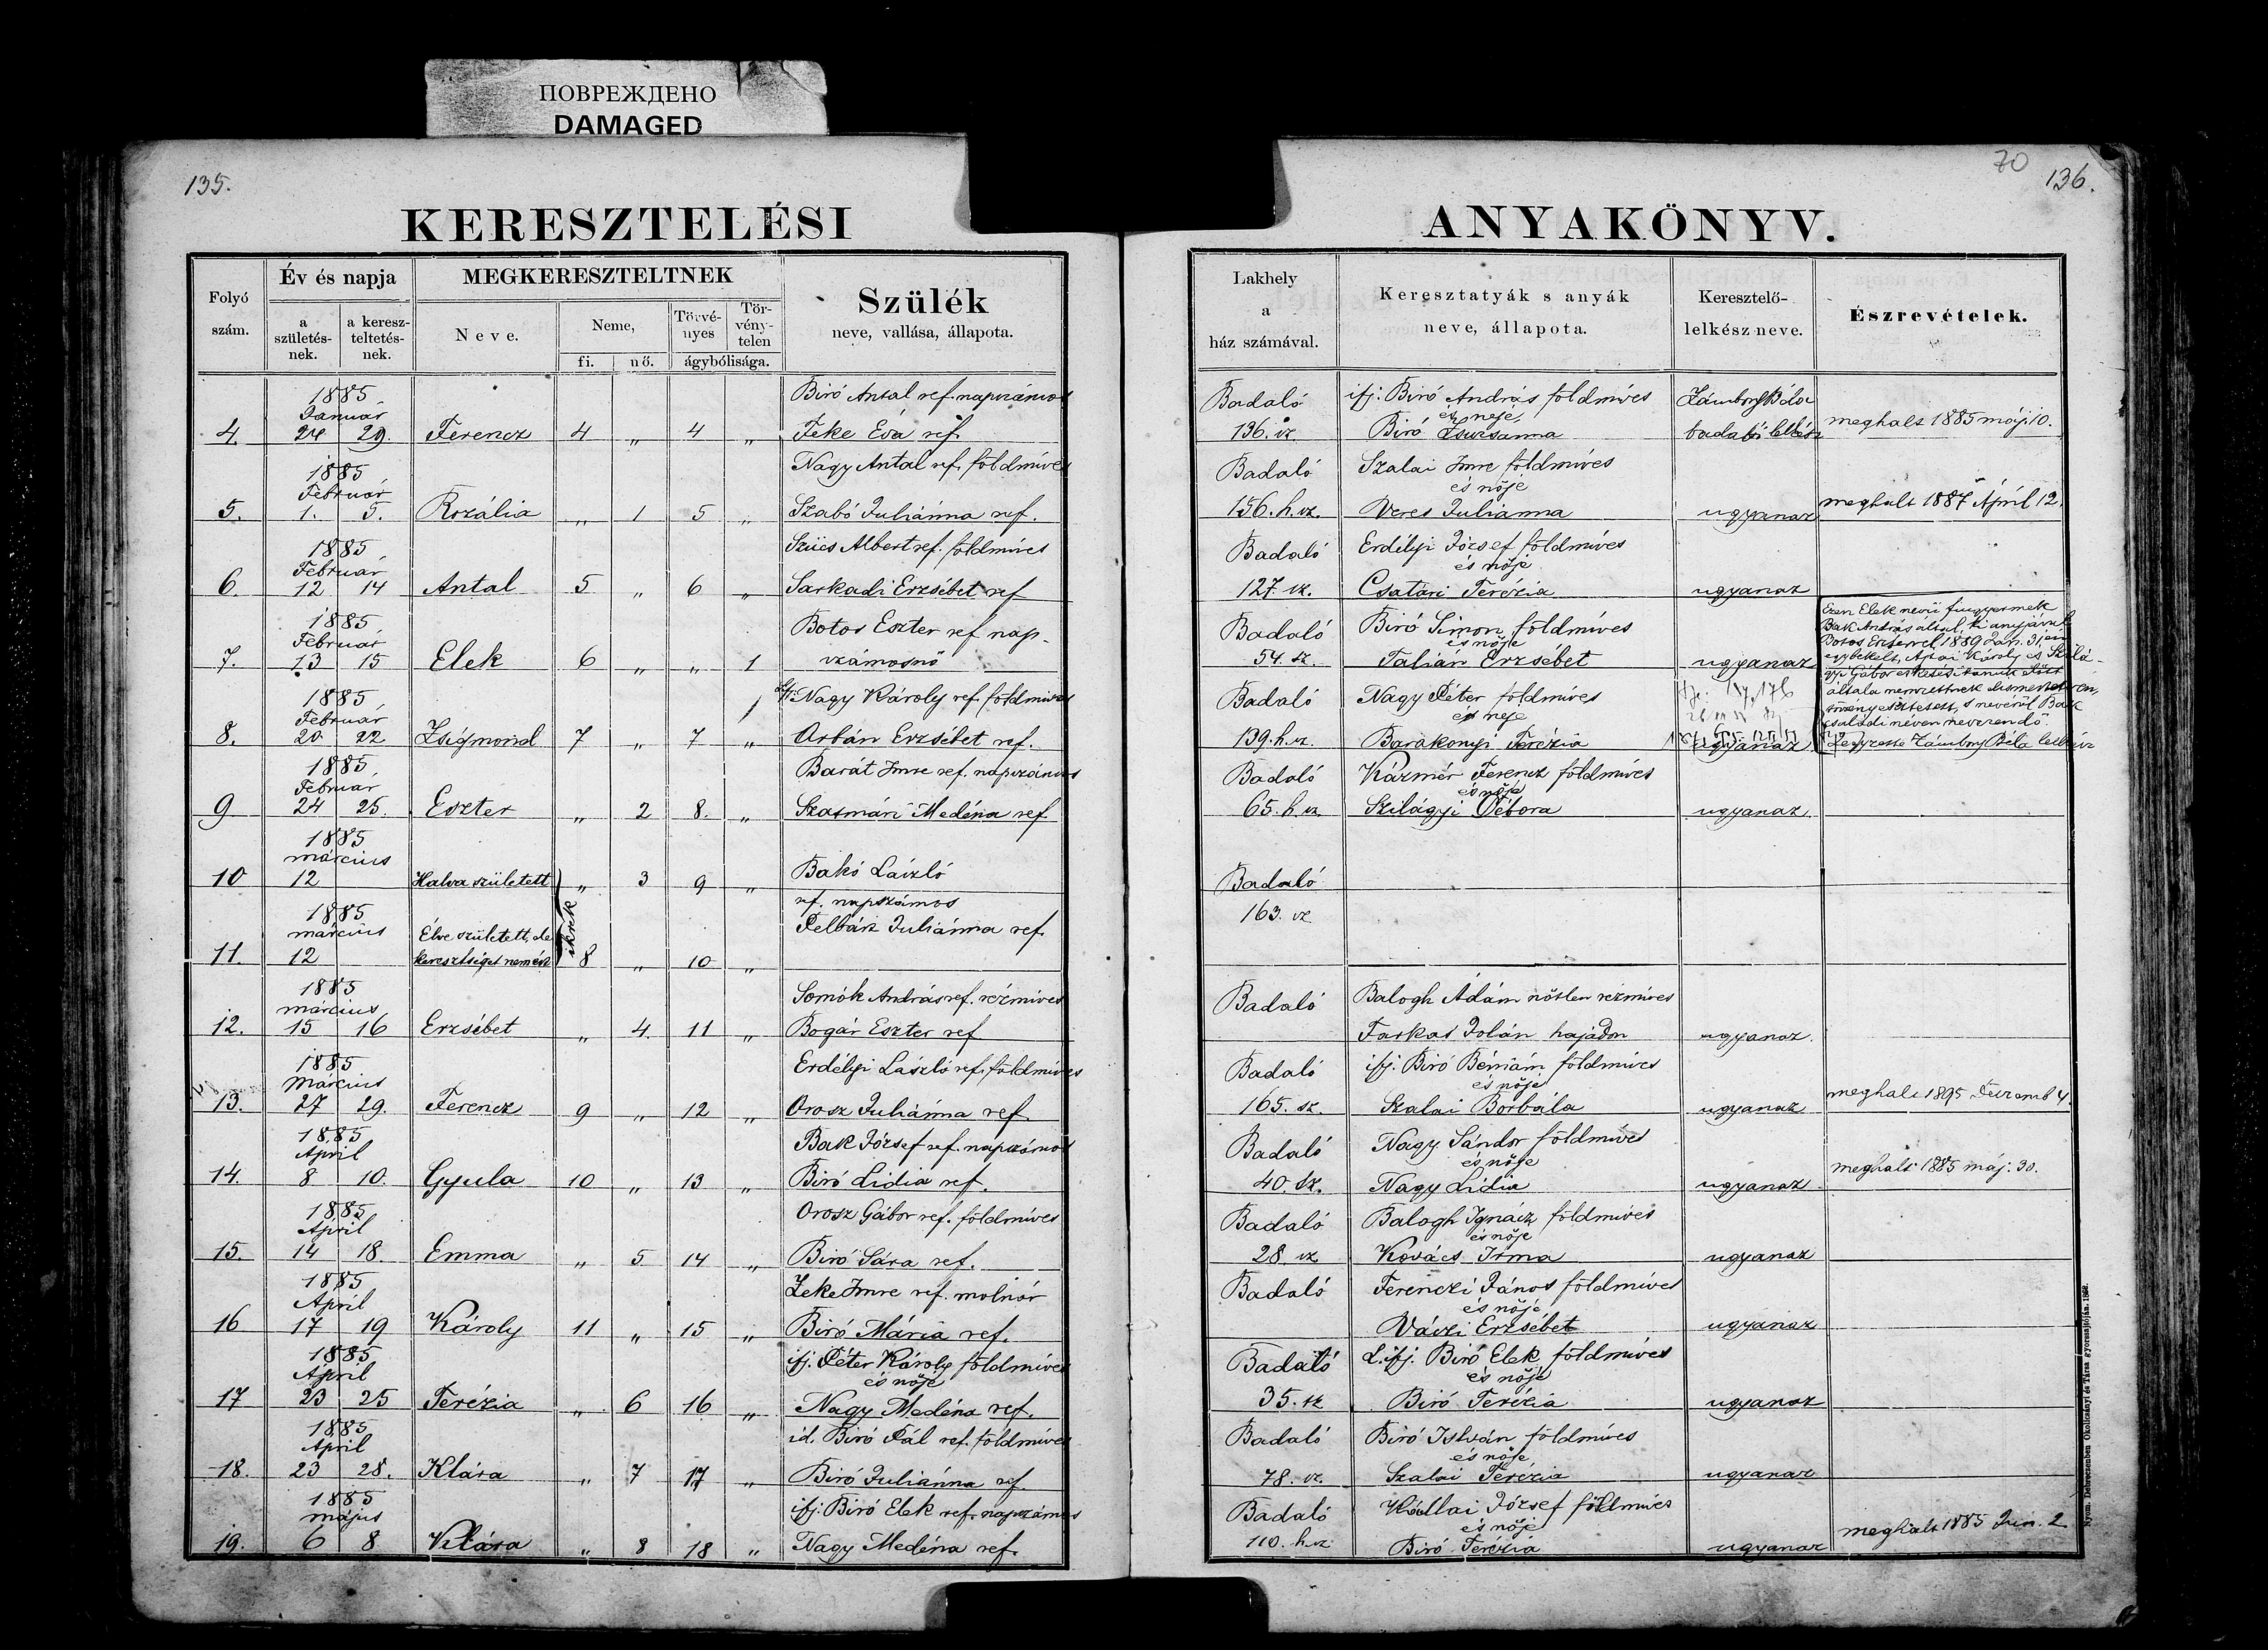 ПОВРЕЖДЕНО
DAMAGED
135.
KERESZTELÉSI
Folyó szám.
Év és napja
a születés-nek.
a keresz-teltetés-nek.
MEGKERESZTELTNEK
Neve.
Neme,
fi.
nő.
Törvé-nyes
Tör-vény-telen
ágybólisága.
Szülék
neve, vallása, állapota.
1885 Január Biró Antal ref. napszámos
4. 24 29. Ferencz 4 „ 4 „ Feke Éva ref.
1885 Február Nagy Antal ref. földmíves
5. 1. 5. Rozália „ 1 5 „ Szabó Juliánna ref.
1885 Február Szücs Albert ref. földmíves
6. 12 14 Antal 5 „ 6 „ Sarkadi Erzsébet ref
1885 Február Botos Eszter ref nap-
7. 13 15 Elek 6 „ „ 1 számosnő
1885 Február Nagy Károly ref. földmíves
8. 20 22 Zsigmond 7 „ 7 „ Orbán Erzsébet ref.
1885 Február Barát Imre ref. napszámos
9 24 25. Eszter „ 2 8. „ Szasmári Medéna ref
1885 március Bakó László
10 12 Halva született „ 3 9 „
ikrek
ref. napszámos
1885 március Élve született, de Pelbárt Juliánna ref.
11. 12 keresztséget nem ért 8 „ 10 „
1885 március Somók András ref. rézmíves
12. 15 16 Erzsébet „ 4. 11 „ Bogár Eszter ref
1885 Március Erdélyi László ref. földmíves
13. 27 29. Ferencz 9 „ 12 „ Orosz Juliánna ref
1885 April Bak József ref. napszámos
14. 8 10. Gyula 10 „ 13 „ Biró Lidia ref.
1885 April Orosz Gábor ref. földmíves
15. 14 18. Emma „ 5 14 „ Biró Sára ref.
1885 April Zeke Imre ref. molnár
16 17 19 Károly 11 „ 15 „ Biró Mária ref.
1885 April ifj. Péter Károly földmíves
és nője
17 23 25 Terézia „ 6 16 „ Nagy Medéna ref.
1885 April id. Biró Pál ref. földmíves
18. 23 28. Klára „ 7 17 „ Biró Juliánna ref
1885 május ifj. Biró Elek ref. napszámos
19. 6 8 Klára „ 8 18 „ Nagy Medéna ref.
70
136.
ANYAKÖNYV.
Lakhely a ház számával.
Keresztatyák s anyák
neve, állapota.
Keresztelő-
lelkész neve.
Észrevételek.
Badaló ifj. Biró András földmíves Zámbory Béla
és neje
136. sz. Biró Zsuzsánna badalói lelkész meghalt 1885 máj. 10.
Badaló Szalai Imre földmíves
és nője
156. h. sz. Veres Julianna ugyanaz meghalt 1887 Ápril 12.
Badaló Erdélyi József földmíves
és nője
127. sz. Csatári Terézia ugyanaz
Badaló Biró Simon földmíves
és nője
54. sz. Talián Erzsébet ugyanaz
Ezen Elek nevű fiugyermek
Bak András által, ki anyjával
Botos Eszterrel 1889 Jan. 31 jén
egybekelt, Apai Károly és Szilá-
gyi Gábor esketési tanuk előtt
általa nemzettnek elismertetvén,
törvényesíttetett, s nevéről Bak
családi néven neverendő.
Jegyzette Zámbory Béla lelkész
Badaló Nagy Péter földmíves
és neje
139. h. sz. Barakonyi Terézia ugyanaz
Badaló Kázmér Ferencz földmíves
és nője
65. h. sz. Szilágyi Débora ugyanaz.
Badaló
163. sz
Badaló Balogh Ádám nőtlen rézmíves
Farkas Jolán hajadon ugyanaz.
Badaló ifj. Biró Béniám földmíves
és nője
165. sz. Szalai Borbála ugyanaz meghalt 1895 Decemb 4.
Badaló Nagy Sándor földmíves
és nője
40. sz. Nagy Lidia ugyanaz meghalt 1885 máj. 30.
Badaló Balogh Ignácz földmíves
és nője
28. sz Kovács Irma ugyanaz
Badaló Ferenczi János földmíves
és nője
Váczi Erzsébet ugyanaz
Badaló L. ifj. Biró Elek földmíves
és nője
35. sz Biró Terézia ugyanaz
Badaló Biró István földmíves
és nője
78. sz. Szalai Terézia ugyanaz
Badaló Kállai József földmíves
és nője
110. h. sz Biró Terézia ugyanaz meghalt 1885 Jun. 2